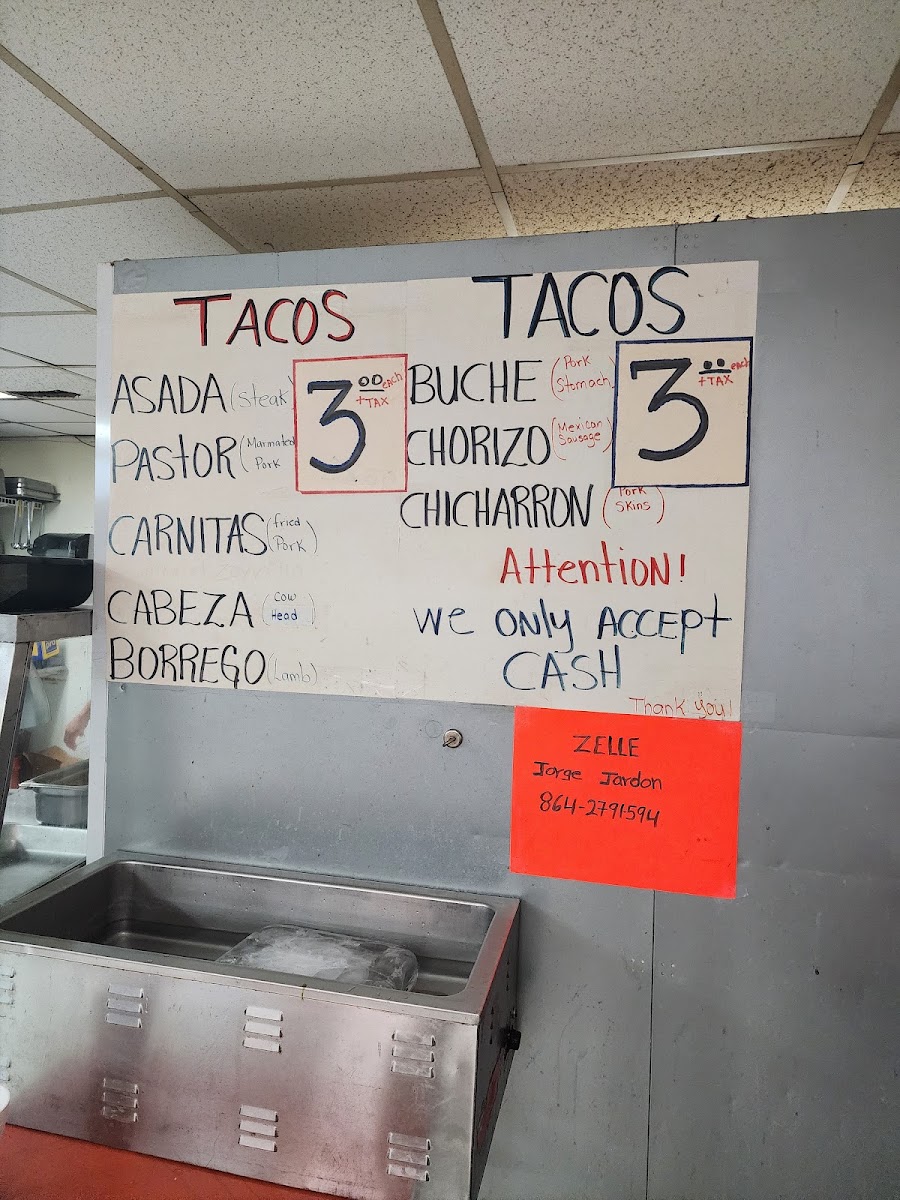 TACOS
ASADA (Steak)
3.00 each
+ TAX
PASTOR (Marinated
Pork
CARNITAS (fried
Pork)
CABEZA (Cow
Head)
BORREGO (Lamb)
TACOS
BUCHE (Pork
Stomach)
3.00 each
+ TAX
CHORIZO (Mexican
Sausage)
CHICHARRON (Pork
Skins)
Attention!
We ONly ACCEPt
CASH
Thank you!
ZELLE
Jorge Jardon
864-2791594